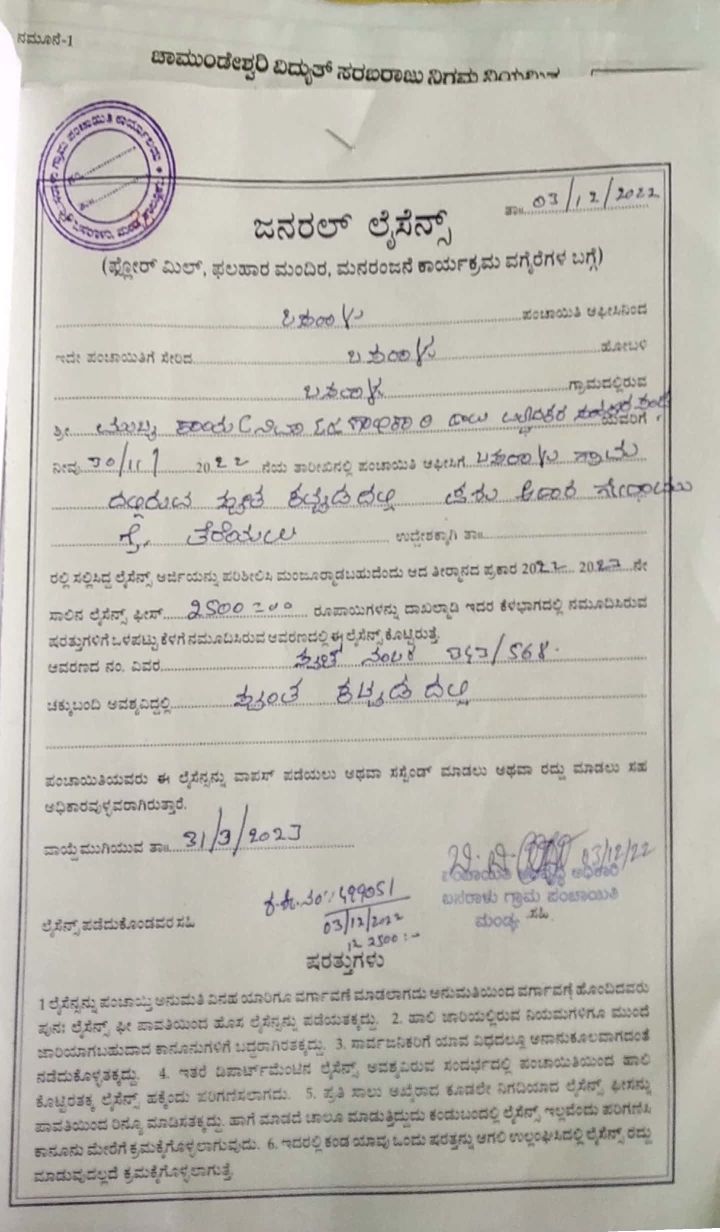 ನಮೂನೆ-1
ಚಾಮುಂಡೇಶ್ವರಿ ವಿದ್ಯುತ್ ಸರಬರಾಜು ನಿಗಮ ನಿಯಮಿತ
ತಾ॥ 03/12/2022
ಜನರಲ್ ಲೈಸೆನ್ಸ್
(ಫ್ಲೋರ್ ಮಿಲ್, ಫಲಹಾರ ಮಂದಿರ, ಮನರಂಜನೆ ಕಾರ್ಯಕ್ರಮ ವಗೈರೆಗಳ ಬಗ್ಗೆ)
ಬಸರಾಳು ಪಂಚಾಯಿತಿ ಆಫೀಸಿನಿಂದ
ಇದೇ ಪಂಚಾಯಿತಿಗೆ ಸೇರಿದ ಬಸರಾಳು ಹೋಬಳಿ
ಬಸರಾಳು ಗ್ರಾಮದಲ್ಲಿರುವ
ಶ್ರೀ ಮುಖ್ಯ ಕಾರ್ಯನಿರ್ವಾಹಣಾಧಿಕಾರಿ ಹಾಲು ಯವರಿಗೆ
ನೀವು 30/11/ 2022 ನೆಯ ತಾರೀಖಿನಲ್ಲಿ ಪಂಚಾಯಿತಿ ಆಫೀಸಿಗೆ ಬಸರಾಳು ಗ್ರಾಮ
ದಲ್ಲಿರುವ ಸ್ವಂತ ಕಟ್ಟಡದಲ್ಲಿ ಪಶು ಆಹಾರ
ತೆರೆಯಲು ಉದ್ದೇಶಕ್ಕಾಗಿ ತಾ॥
ರಲ್ಲಿ ಸಲ್ಲಿಸಿದ್ದ ಲೈಸೆನ್ಸ್ ಅರ್ಜಿಯನ್ನು ಪರಿಶೀಲಿಸಿ ಮಂಜೂರ್ಮಾಡಬಹುದೆಂದು ಆದ ತೀರ್ಮಾನದ ಪ್ರಕಾರ 2022 2023 ನೇ
ಸಾಲಿನ ಲೈಸೆನ್ಸ್ ಫೀಸ್ 2500=00 ರೂಪಾಯಿಗಳನ್ನು ದಾಖಲ್ಮಾಡಿ ಇದರ ಕೆಳಭಾಗದಲ್ಲಿ ನಮೂದಿಸಿರುವ
ಷರತ್ತುಗಳಿಗೆ ಒಳಪಟ್ಟು ಕೆಳಗೆ ನಮೂದಿಸಿರುವ ಆವರಣದಲ್ಲಿ ಈ ಲೈಸೆನ್ಸ್ ಕೊಟ್ಟಿರುತ್ತೆ.
ಆವರಣದ ನಂ. ವಿವರ ಸ್ವತ್ತಿನ ನಂಬರ 343/568.
ಚಕ್ಕುಬಂದಿ ಅವಶ್ಯವಿದ್ದಲ್ಲಿ ಸ್ವಂತ ಕಟ್ಟಡದಲ್ಲಿ
ಪಂಚಾಯಿತಿಯವರು ಈ ಲೈಸೆನ್ಸನ್ನು ವಾಪಸ್ ಪಡೆಯಲು ಅಥವಾ ಸಸ್ಪೆಂಡ್ ಮಾಡಲು ಅಥವಾ ರದ್ದು ಮಾಡಲು ಸಹ
ಅಧಿಕಾರವುಳ್ಳವರಾಗಿರುತ್ತಾರೆ.
ವಾಯ್ದೆ ಮುಗಿಯುವ ತಾ॥ 31/3/2023
03/12/22
ಪಂಚಾಯಿತಿ ಅಭಿವೃದ್ಧಿ ಅಧಿಕಾರಿ
ಬಸರಾಳು ಗ್ರಾಮ ಪಂಚಾಯಿತಿ
ಮಂಡ್ಯ ಸಹಿ
ಲೈಸೆನ್ಸ್ ಪಡೆದುಕೊಂಡವರ ಸಹಿ
499051
03/12/2022
2500:-
ಷರತ್ತುಗಳು
1 ಲೈಸೆನ್ಸನ್ನು ಪಂಚಾಯ್ತಿ ಅನುಮತಿ ವಿನಹ ಯಾರಿಗೂ ವರ್ಗಾವಣೆ ಮಾಡಲಾಗದು ಅನುಮತಿಯಿಂದ ವರ್ಗಾವಣೆ ಹೊಂದಿದವರು
ಪುನಃ ಲೈಸೆನ್ಸ್ ಫೀ ಪಾವತಿಯಿಂದ ಹೊಸ ಲೈಸೆನ್ಸನ್ನು ಪಡೆಯತಕ್ಕದ್ದು. 2. ಹಾಲಿ ಜಾರಿಯಲ್ಲಿರುವ ನಿಯಮಗಳಿಗೂ ಮುಂದೆ
ಜಾರಿಯಾಗಬಹುದಾದ ಕಾನೂನುಗಳಿಗೆ ಬದ್ಧರಾಗಿರತಕ್ಕದ್ದು. 3. ಸಾರ್ವಜನಿಕರಿಗೆ ಯಾವ ವಿಧದಲ್ಲೂ ಅನಾನುಕೂಲವಾಗದಂತೆ
ನಡೆದುಕೊಳ್ಳತಕ್ಕದ್ದು. 4. ಇತರೆ ಡಿಪಾರ್ಟ್‌ಮೆಂಟಿನ ಲೈಸೆನ್ಸ್ ಅವಶ್ಯವಿರುವ ಸಂದರ್ಭದಲ್ಲಿ ಪಂಚಾಯಿತಿಯಿಂದ ಹಾಲಿ
ಕೊಟ್ಟಿರತಕ್ಕ ಲೈಸೆನ್ಸ್ ಹಕ್ಕೆಂದು ಪರಿಗಣಿಸಲಾಗದು. 5. ಪ್ರತಿ ಸಾಲು ಆಖೈರಾದ ಕೂಡಲೇ ನಿಗದಿಯಾದ ಲೈಸೆನ್ಸ್ ಫೀಸನ್ನು
ಪಾವತಿಯಿಂದ ರಿನ್ಯೂ ಮಾಡಿಸತಕ್ಕದ್ದು. ಹಾಗೆ ಮಾಡದೆ ಚಾಲೂ ಮಾಡುತ್ತಿದ್ದುದು ಕಂಡುಬಂದಲ್ಲಿ ಲೈಸೆನ್ಸ್ ಇಲ್ಲವೆಂದು ಪರಿಗಣಿಸಿ
ಕಾನೂನು ಮೇರೆಗೆ ಕ್ರಮಕೈಗೊಳ್ಳಲಾಗುವುದು. 6. ಇದರಲ್ಲಿ ಕಂಡ ಯಾವು ಒಂದು ಷರತ್ತನ್ನು ಆಗಲಿ ಉಲ್ಲಂಘಿಸಿದಲ್ಲಿ ಲೈಸೆನ್ಸ್ ರದ್ದು
ಮಾಡುವುದಲ್ಲದೆ ಕ್ರಮಕೈಗೊಳ್ಳಲಾಗುತ್ತೆ.